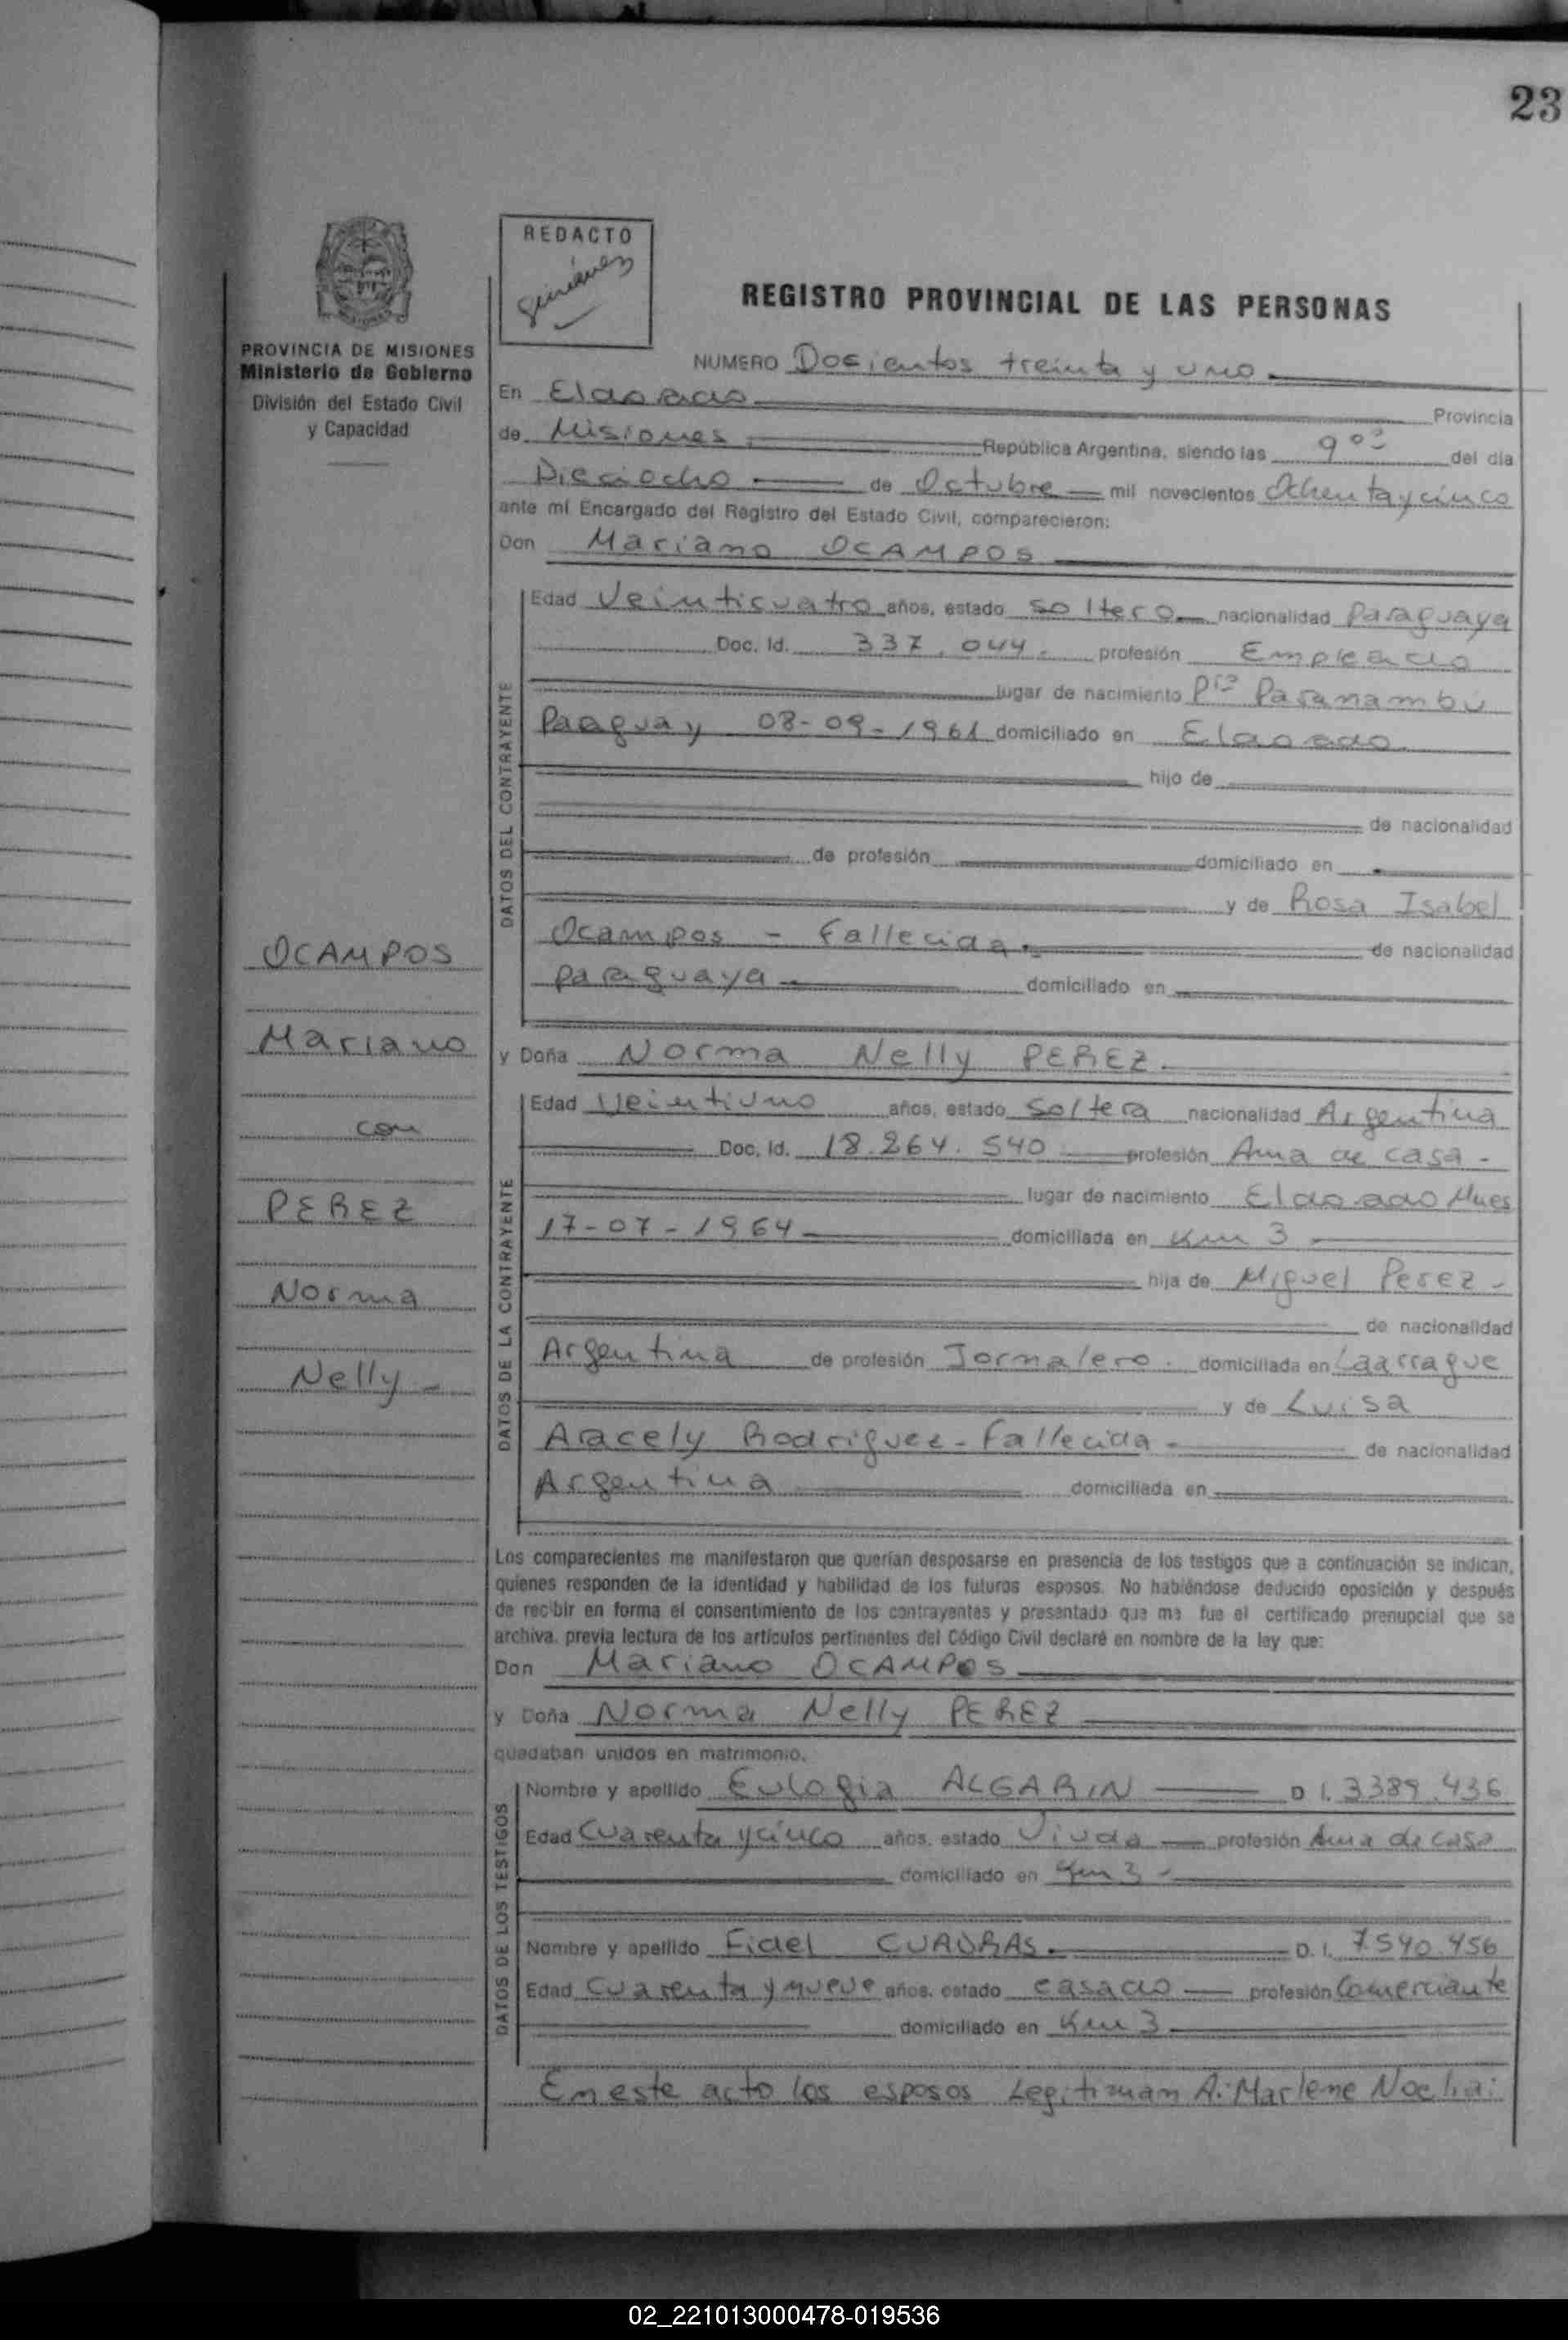 23
REDACTO
Giménez
REGISTRO PROVINCIAL DE LAS PERSONAS
PROVINCIA DE MISIONES
Ministerio de Gobierno
División del Estado Civil
y Capacidad
NUMERO Docientos treinta y uno
En Eldorado Provincia
de Misiones República Argentina, siendo las 9 00 del día
Dieciocho de Octubre mil novecientos Ochenta y cinco
ante mí Encargado del Registro del Estado Civil, comparecieron:
Don Mariano OCAMPOS
DATOS DEL CONTRAYENTE
Edad Veinticuatro años, estado soltero nacionalidad Paraguaya
Doc. Id. 337.044. profesión Empleado
lugar de nacimiento Pto Paranambú
Paraguay 08-09-1961 domiciliado en Eldorado
hijo de
de nacionalidad
de profesión domiciliado en
y de Rosa Isabel
Ocampos - Fallecida. de nacionalidad
paraguaya domiciliado en
OCAMPOS
Mariano
con
PEREZ
Norma
Nelly -
y Doña Norma Nelly PEREZ.
DATOS DE LA CONTRAYENTE
Edad Veintiuno años, estado Soltera nacionalidad Argentina
Doc. Id. 18.264.540 profesión Ama de casa -
lugar de nacimiento Eldorado Mnes
17-07-1964 domiciliada en Km 3
hija de Miguel Perez -
de nacionalidad
Argentina de profesión Jornalero. domiciliada en Laarrague
y de Luisa
Aracely Rodriguez - Fallecida - de nacionalidad
Argentina domiciliada en
Los comparecientes me manifestaron que querían desposarse en presencia de los testigos que a continuación se indican,
quienes responden de la identidad y habilidad de los futuros esposos. No habiéndose deducido oposición y después
de recibir en forma el consentimiento de los contrayentes y presentado que me fue el certificado prenupcial que se
archiva, previa lectura de los artículos pertinentes del Código Civil declaré en nombre de la ley que:
Don Mariano OCAMPOS
y Doña Norma Nelly PEREZ
quedaban unidos en matrimonio.
DATOS DE LOS TESTIGOS
Nombre y apellido Eulogia ALGARIN D I. 3389.436
Edad Cuarenta y cinco años, estado Viuda profesión Ama de casa
domiciliado en Km 3 -
Nombre y apellido Fidel CUADRAS. D. I. 7.540.456
Edad Cuarenta y nueve años, estado casado profesión Comerciante
domiciliado en Km 3
En este acto los esposos Legitiman A: Marlene Noelia:
02_221013000478-019536